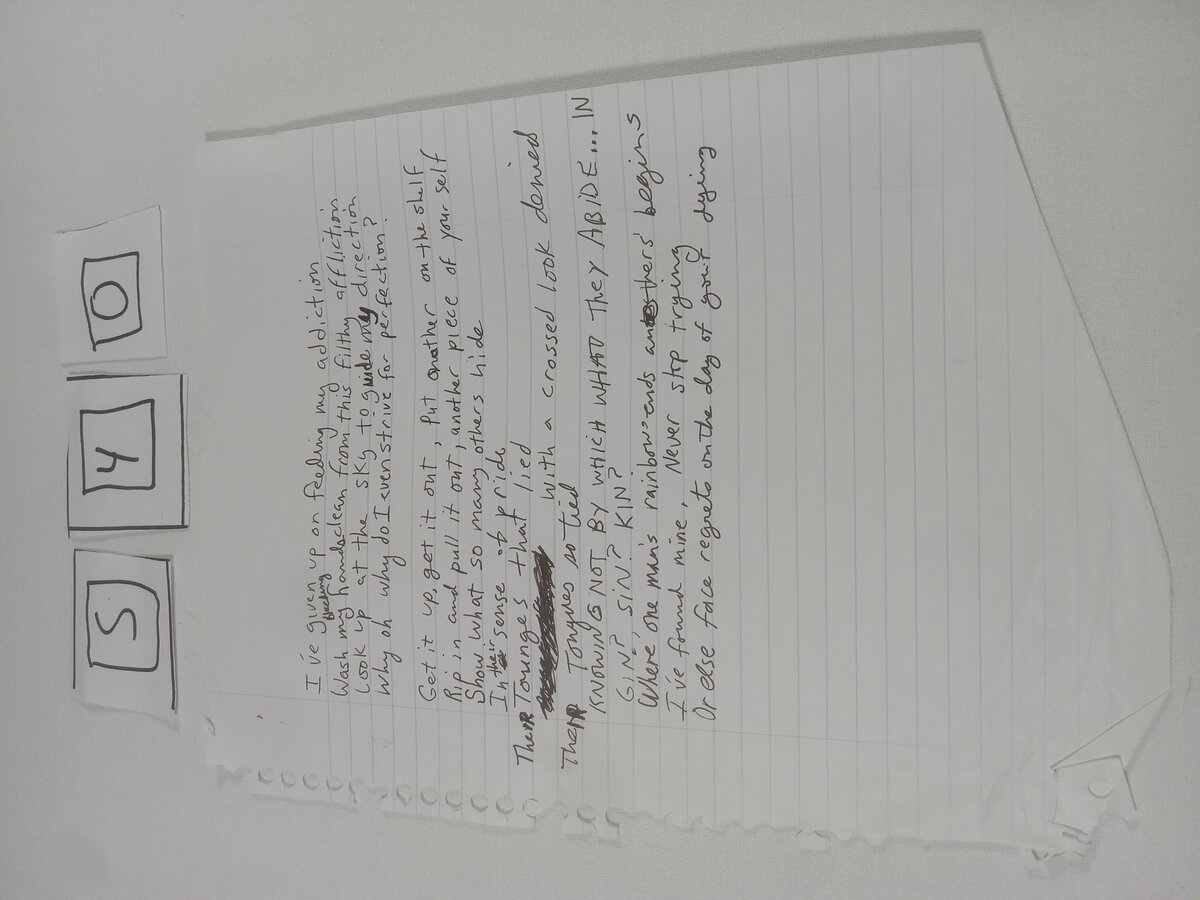 5 4 0
I've given up on feeding my addiction
bleeding
Wash my hands clean from this filthy affliction
Look up at the sky to guide my direction
Why oh why do I even strive for perfection?
Get it up, get it out, Put another on the shelf
Rip in and pull it out, another piece of your self
Show what so many others hide
In their sense of pride
Their Tounges that lied
With a crossed look denied
Their Tongues so tied
KNOWING NOT BY WHICH WHAT THEY ABIDE... IN
GIN? SIN? KIN?
Where one man's rainbow ends another's begins
I've found mine, Never stop trying
Or else face regrets on the day of your dying